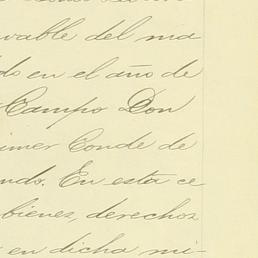 vable del ma
do en el año de
Campo Don
rimer Conde de
ndo. En esta ce
bienes, derechos
en dicha mi-